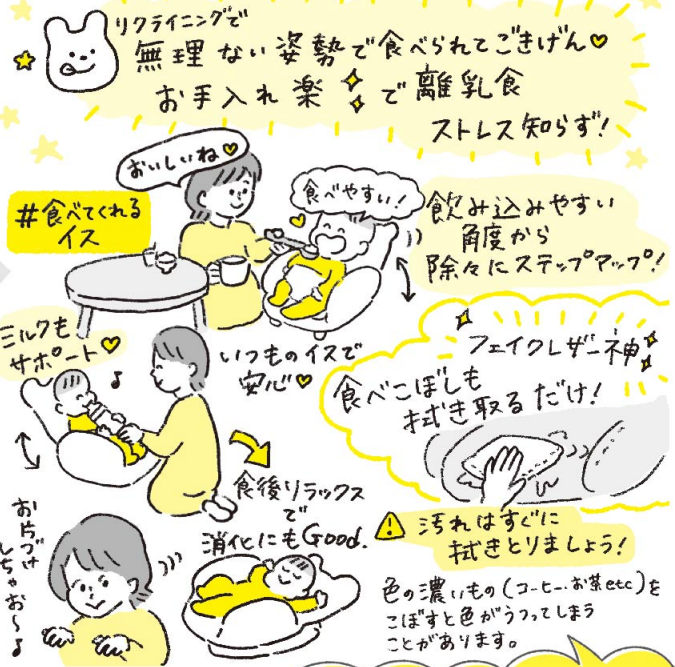 リクライニングで
無理ない姿勢で食べられてごきげん♡
お手入れ楽で離乳食
ストレス知らず!
おいしいね♡
食べやすい!
#食べてくれる
イス
飲み込みやすい
角度から
除々にステップアップ!
ミルクも
サポート♡
いつものイスで
安心♡
フェイクレザー神
食べこぼしも
拭き取るだけ!
食後リラックス
で
消化にもGood.
お片づけ
しちゃお〜♪
汚れはすぐに
拭きとりましょう!
色の濃いもの(コーヒー.お茶etc)を
こぼすと色がうつってしまう
ことがあります。